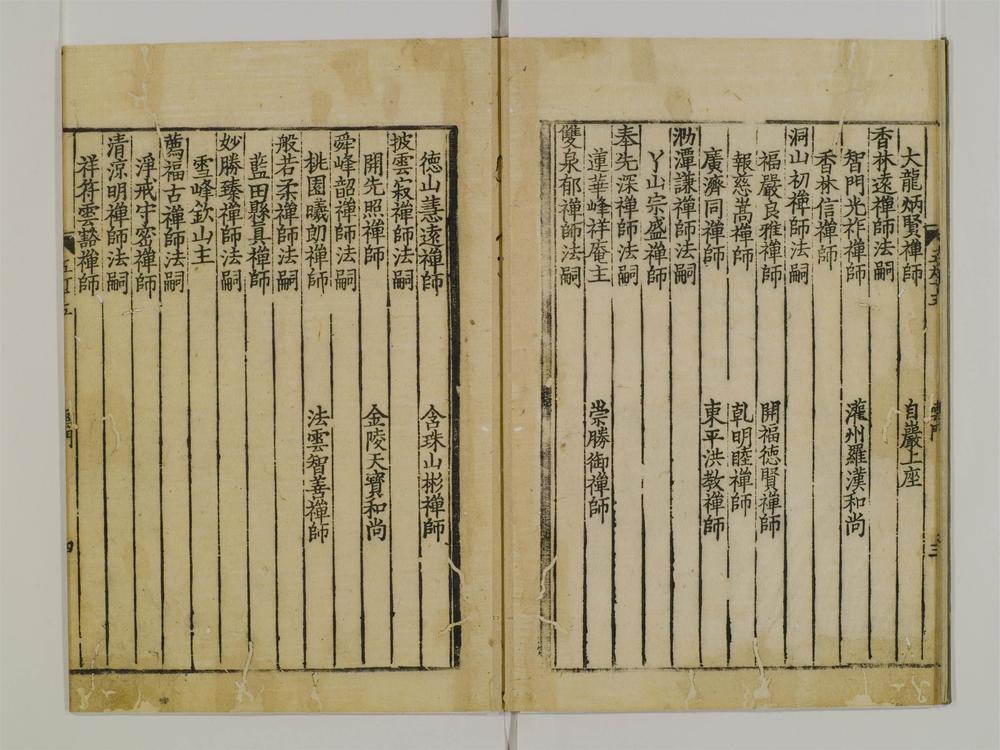 大龍炳賢禪師　自巖上座
香林遠禪師法嗣
智門光祚禪師　灌州羅漢和尚
香林信禪師
洞山初禪師法嗣
福嚴良雅禪師　開福德賢禪師
報慈嵩禪師　乹明睦禪師
廣濟同禪師　東平洪教禪師
泐潭謙禪師法嗣
丫山宗盛禪師
奉先深禪師法嗣
蓮華峰祥庵主　崇勝御禪師
雙泉郁禪師法嗣
德山慧遠禪師　含珠山彬禪師
披雲寂禪師法嗣
開先照禪師　金陵天寶和尚
舜峰韶禪師法嗣
桃園曦朗禪師　法雲智善禪師
般若柔禪師法嗣
藍田縣真禪師
妙勝臻禪師法嗣
雪峰欽山主
薦福古禪師法嗣
淨戒守密禪師
清涼明禪師法嗣
祥符雲豁禪師
四